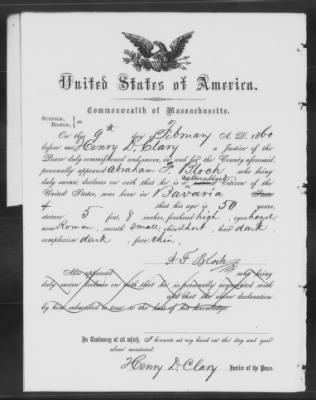 United States of America.
Commonwealth of Massachusetts.
SUFFOLK,
BOSTON, } ss.
On this 9th day of February A. D. 1860
before me Henry D. Clary a Justice of the
Peace duly commissioned and sworn, in and for the County aforesaid,
personally appeared Abraham F. Bloch who being
duly sworn, declares on oath that he is naturalized Citizen of the
United States, was born in Bavaria
that his age is 50 years,
stature 5 feet, 8 inches, forehead high, eyes hazel
nose Roman, mouth small, chin short, hair dark,
complexion dark, face thin.
A F Bloch
Also appeared who being
duly sworn declares on oath that he is personally acquainted with
and that the above declaration
by him subscribed is true to the best of his knowledge
In Testimony of all which, I hereunto set my hand on the day and year
above mentioned.
Henry D. Clary Justice of the Peace.